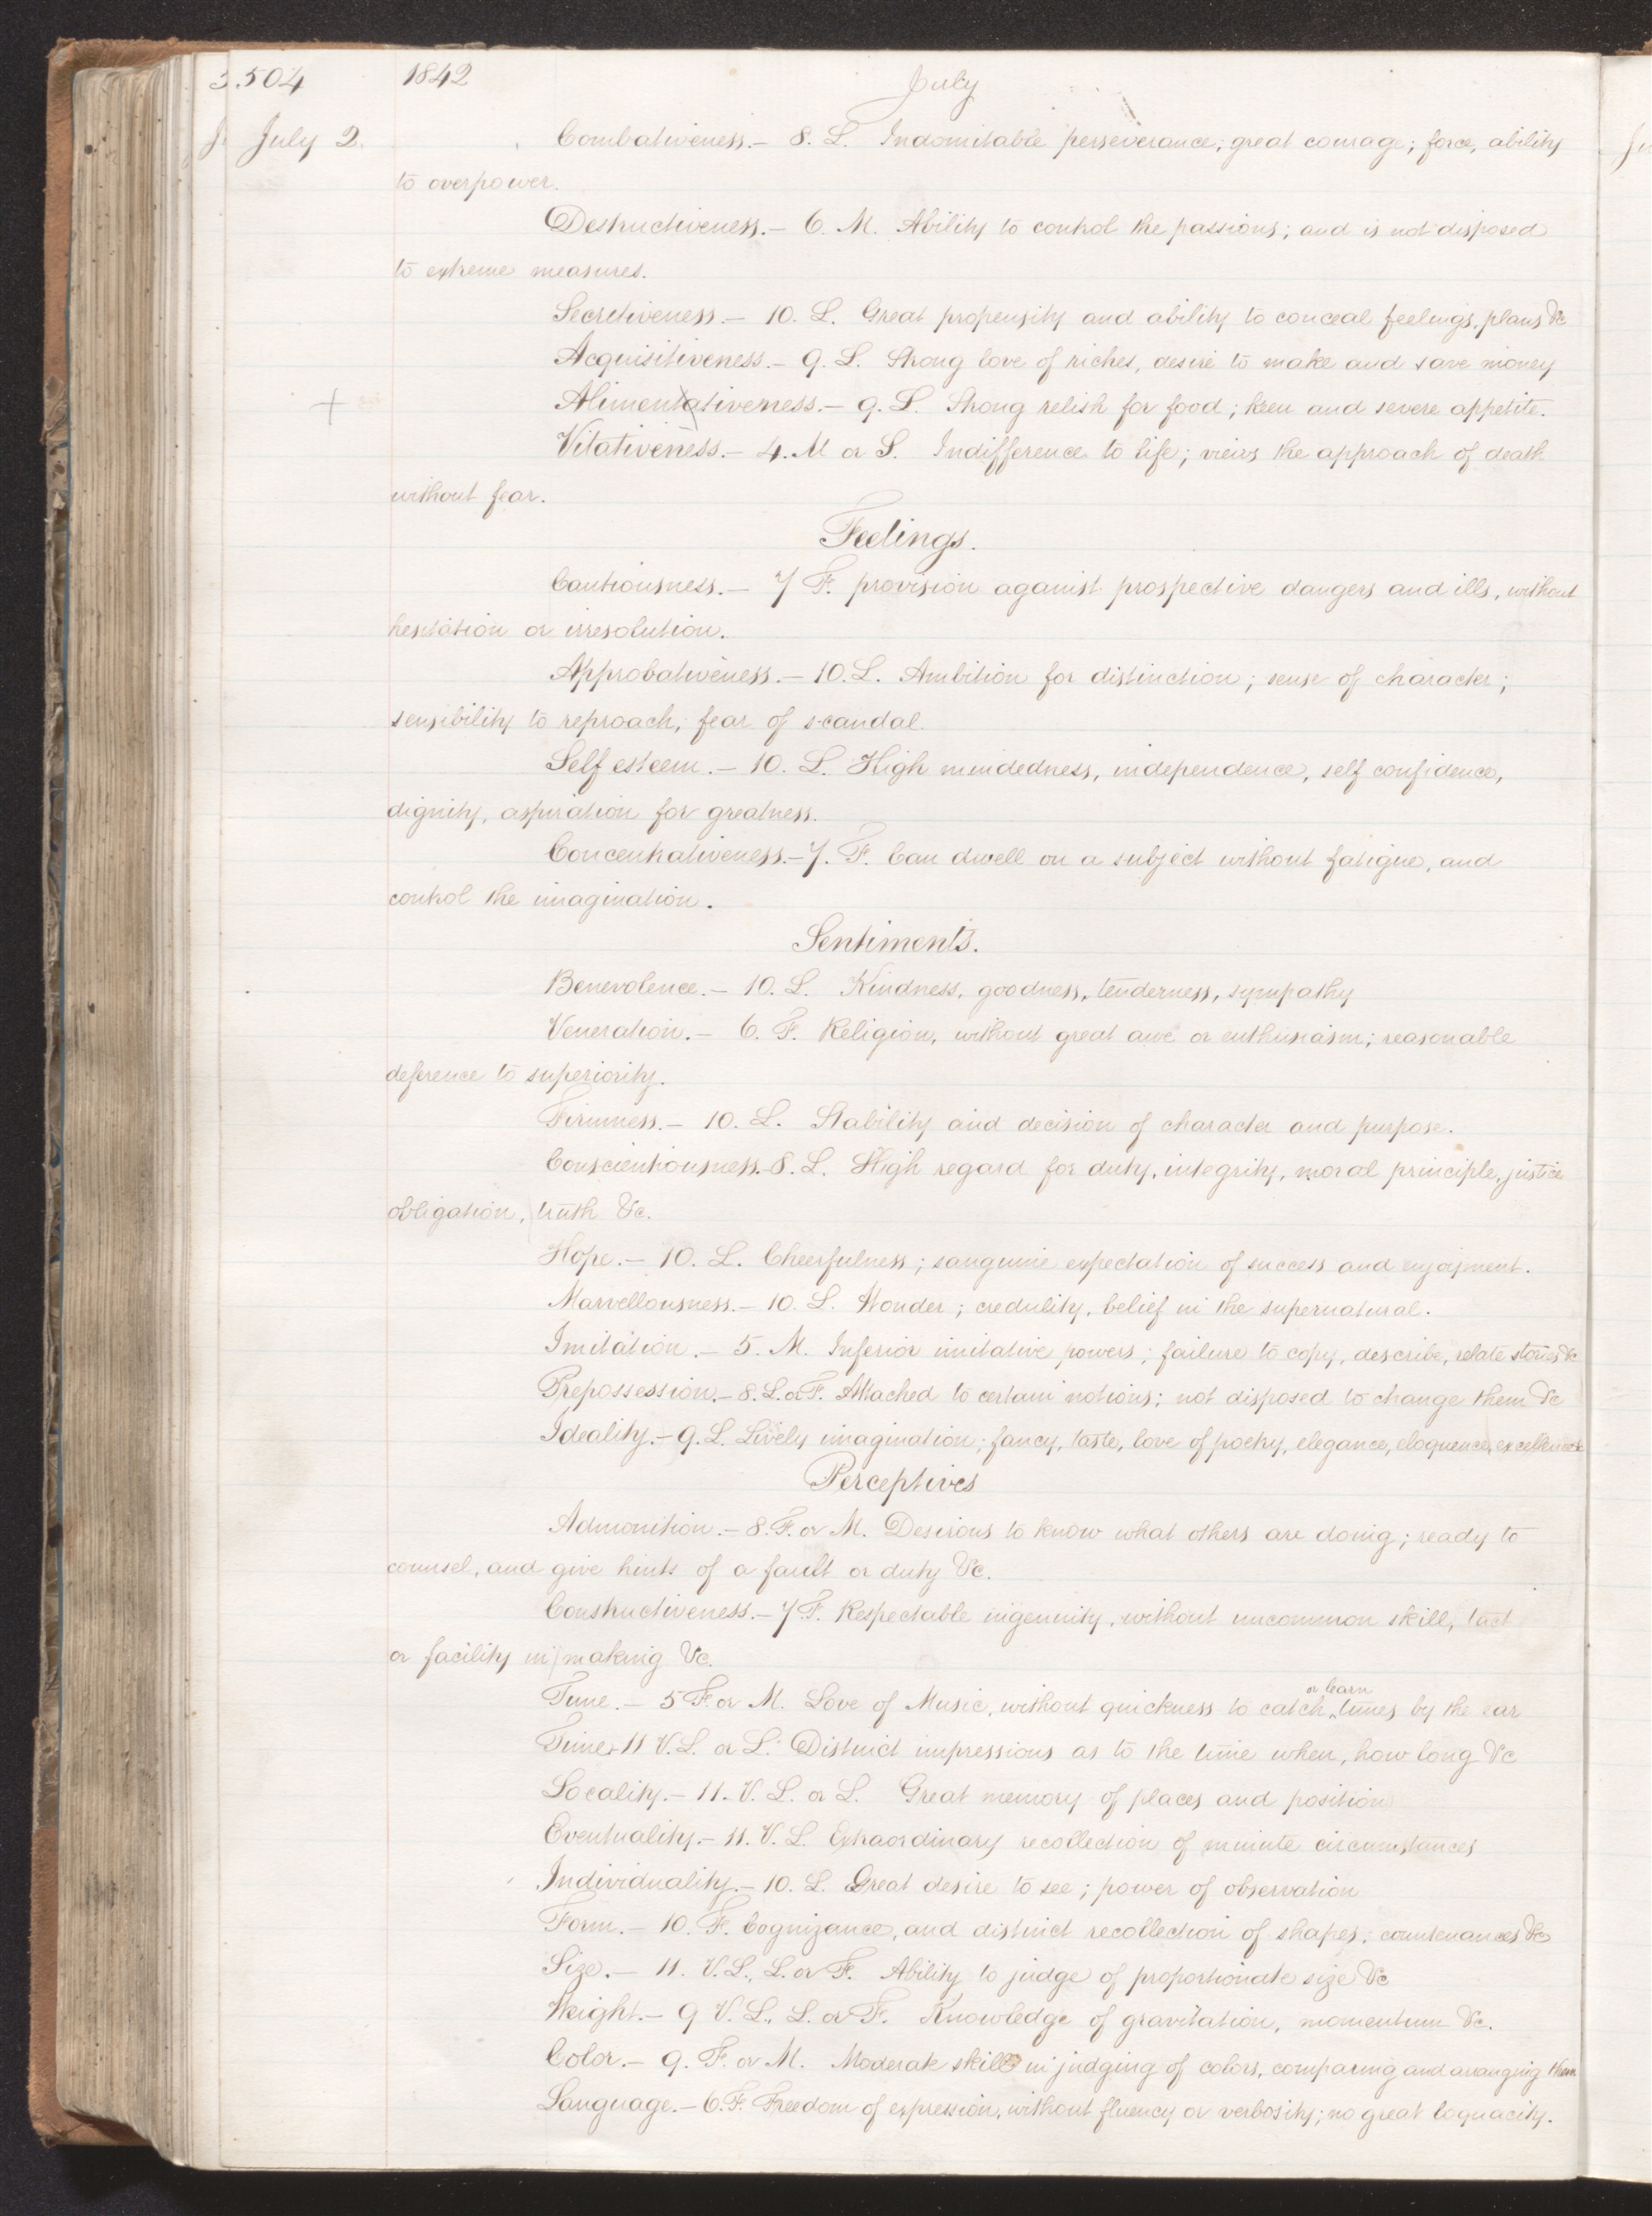 504 1842 July
July 2. Combativeness.— 8. L. Indomitable perseverance; great courage; force, ability
to overpower.
Destructiveness.— 6. M. Ability to control the passions; and is not disposed
to extreme measures.
Secretiveness.— 10. L. Great propensity and ability to conceal feelings, plans &c
Acquisitiveness.— 9. L. Strong love of riches, desire to make and save money
+ Alimentativeness.— 9. L. Strong relish for food; keen and severe appetite.
Vitativeness.— 4. M or S. Indifference to life; views the approach of death
without fear.
Feelings.
Cautiousness.— 7 F. provision against prospective dangers and ills, without
hesitation or irresolution.
Approbativeness.— 10. L. Ambition for distinction; sense of character;
sensibility to reproach; fear of scandal.
Self esteem.— 10. L. High mindedness, independence, self confidence,
dignity, aspiration for greatness.
Concentrativeness.— 7. F. Can dwell on a subject without fatigue, and
control the imagination.
Sentiments.
Benevolence.— 10. L. Kindness, goodness, tenderness, sympathy
Veneration.— 6. F. Religion, without great awe or enthusiasm; reasonable
deference to superiority.
Firmness.— 10. L. Stability and decision of character and purpose.
Conscientiousness.— 8. L. High regard for duty, integrity, moral principle, justice
obligation, truth &c.
Hope.— 10. L. Cheerfulness; sanguine expectation of success and enjoyment.
Marvellousness.— 10. L. Wonder; credulity, belief in the supernatural.
Imitation.— 5. M. Inferior imitative powers; failure to copy, describe, relate stories &c
Prepossession.— 8. L. or F. Attached to certain notions; not disposed to change them &c
Ideality.— 9. L. Lively imagination; fancy, taste, love of poetry, elegance, eloquence, excellence &c
Perceptives
Admonition.— 8. F. or M. Desirous to know what others are doing; ready to
counsel, and give hints of a fault or duty &c.
Constructiveness.— 7 F. Respectable ingenuity, without uncommon skill, tact
or facility in making &c.
or learn
Tune.— 5 F. or M. Love of Music, without quickness to catch ^ tunes by the ear
Time.— 11 V. L. or L. Distinct impressions as to the time when, how long &c
Locality.— 11. V. L. or L. Great memory of places and position
Eventuality.— 11. V. L. Extraordinary recollection of minute circumstances
Individuality.— 10. L. Great desire to see; power of observation
Form.— 10. F. Cognizance, and distinct recollection of shapes; countenances &c
Size.— 11. V. L., L. or F. Ability to judge of proportionate size &c
Weight.— 9 V. L., L. or F. Knowledge of gravitation, momentum &c.
Color.— 9. F. or M. Moderate skill in judging of colors, comparing and arranging them
Language.— 6. F. Freedom of expression, without fluency or verbosity; no great loquacity.